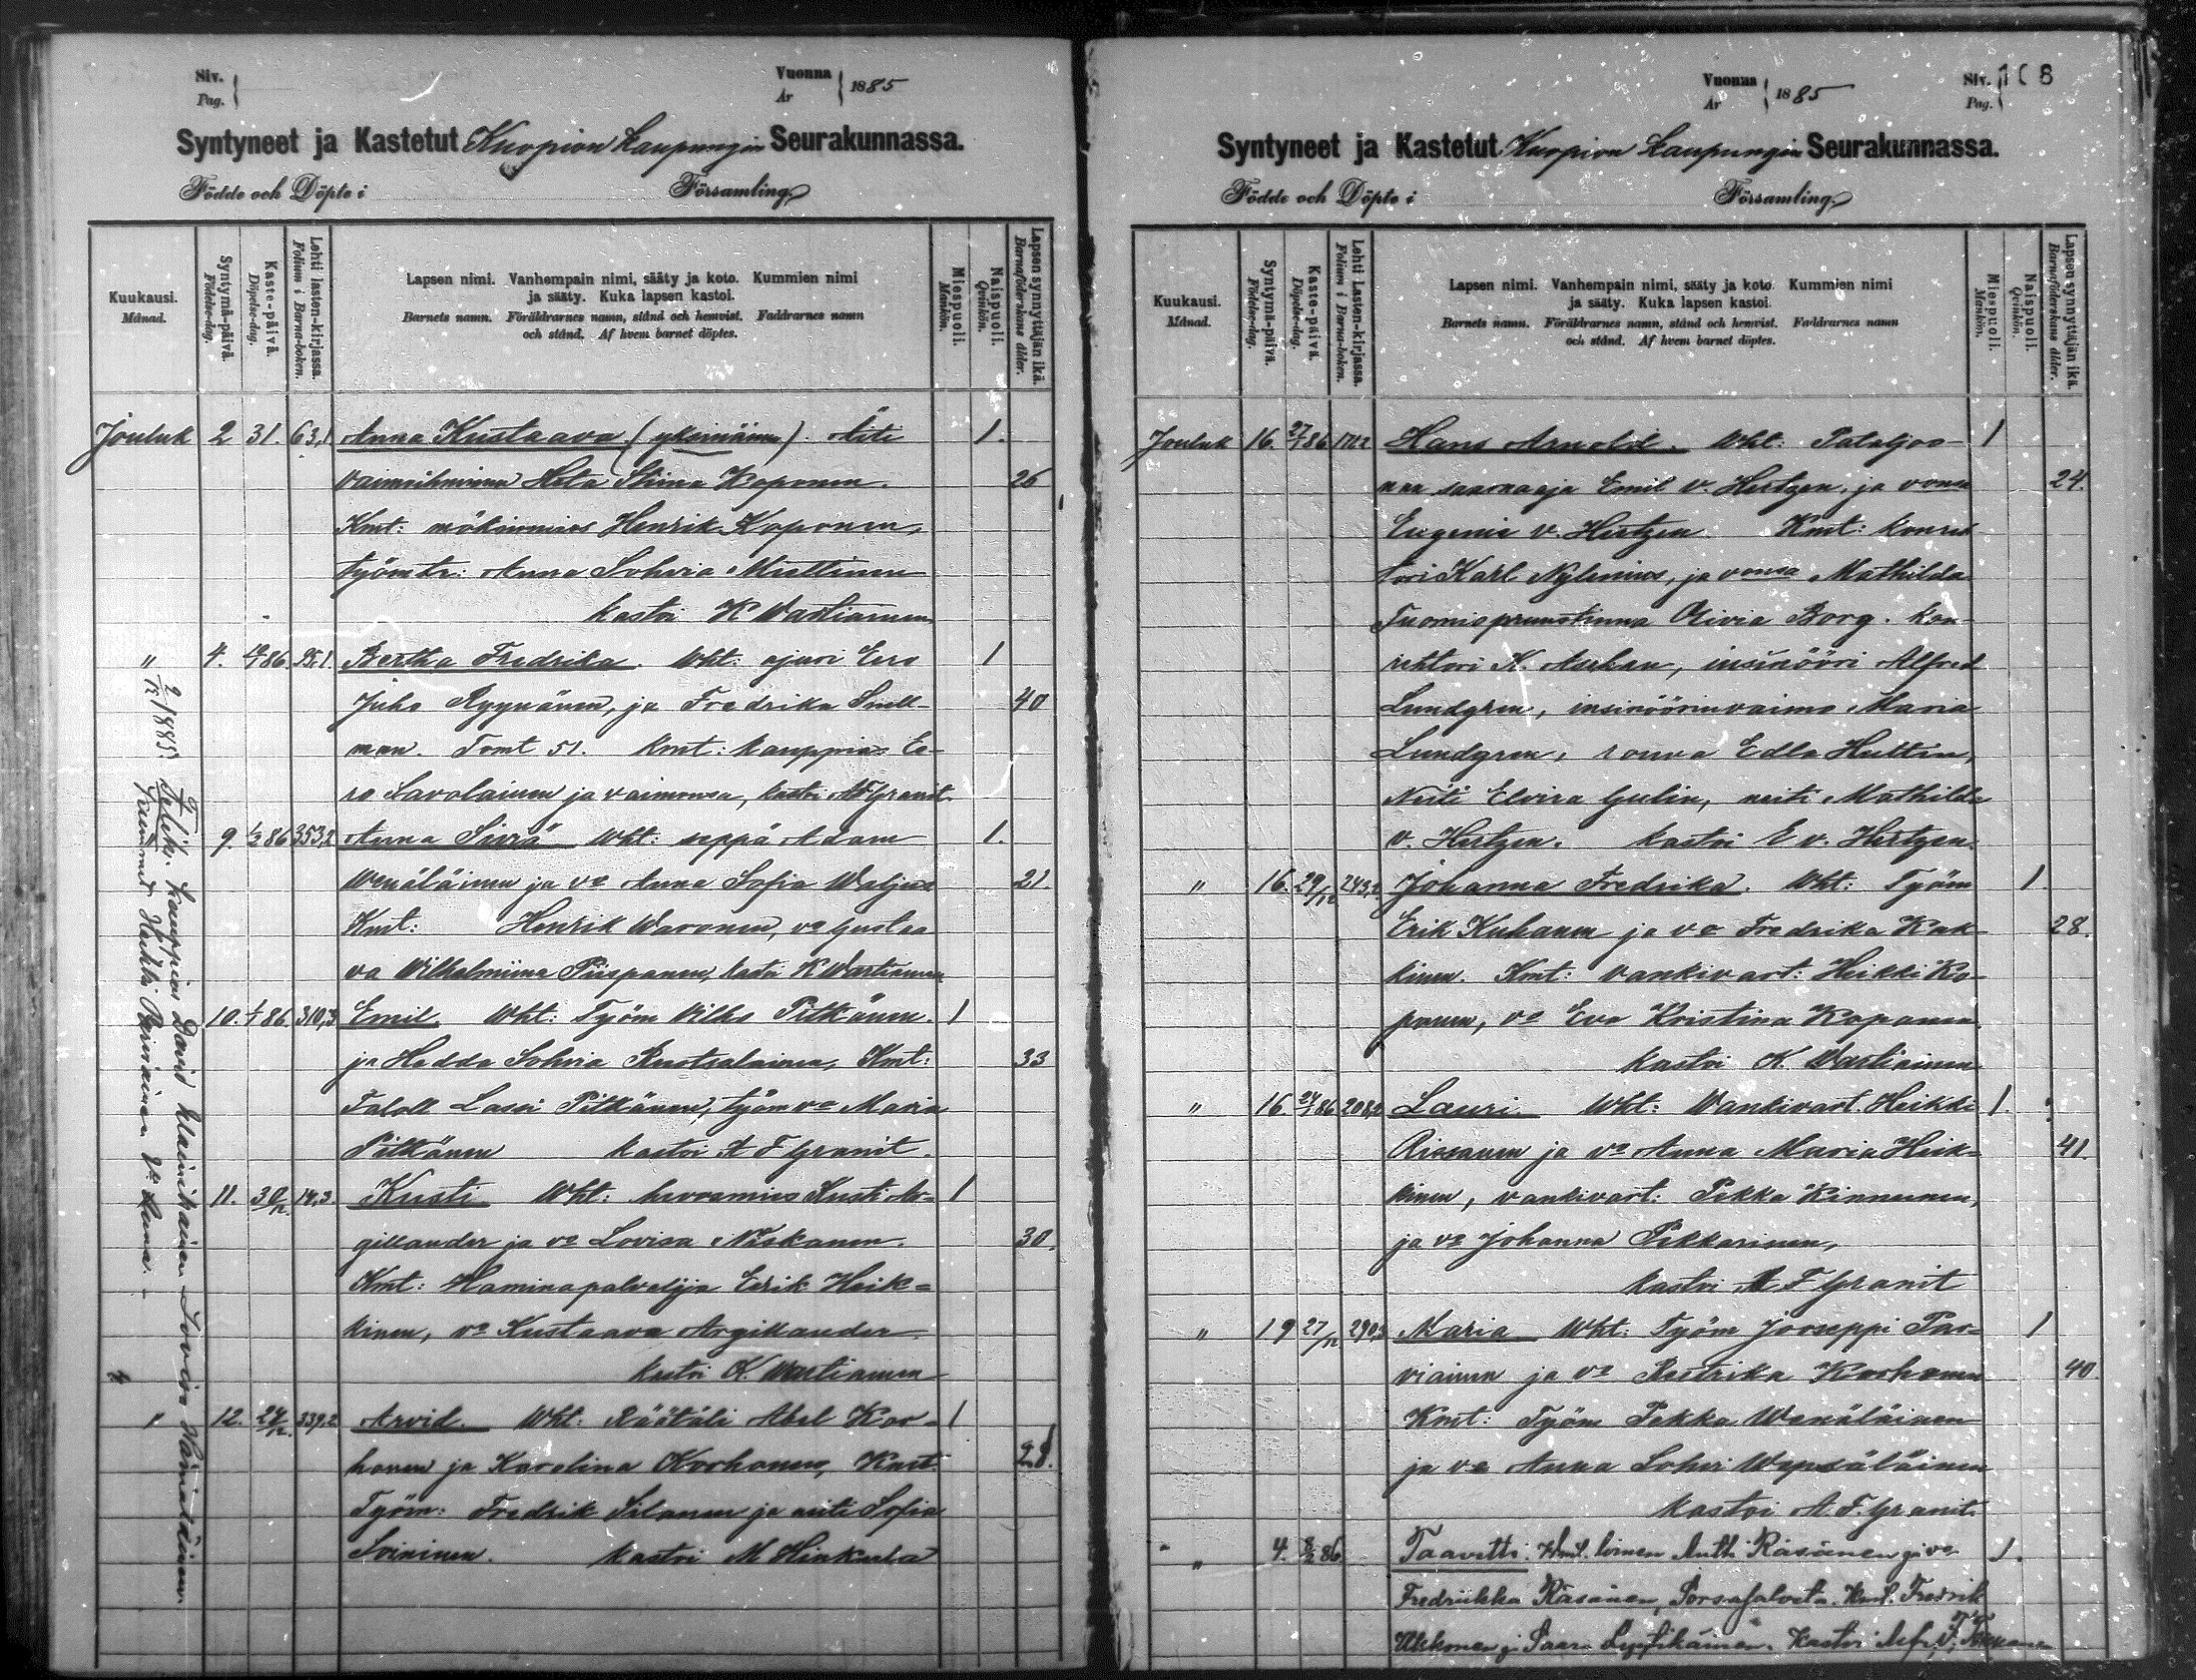 Siv.
Pag.
Vuonna
År
1885
Syntyneet ja Kastetut Kuopion Kaupungin Seurakunnassa.
Födde och Döpte i Församling
Kuukausi.
Månad.
Syntymä-päivä.
Födelse-dag.
Kaste-päivä.
Döpelse-dag.
Lehti lasten-kirjassa.
Folium i Barna-boken.
Lapsen nimi. Vanhempain nimi, sääty ja koto. Kummien nimi
ja sääty. Kuka lapsen kastoi.
Barnets namn. Föräldrarnes namn, stånd och hemvist. Faddrarnes namn
och stånd. Af hvem barnet döptes.
Miespuoli.
Mankön.
Naispuoli.
Qvinkön.
Lapsen synnyttäjän ikä.
Barnaföderskans ålder.
Jouluk 2 31. 63,1 Anna Kustaava (yksinäinen). Äiti 1.
vaimoihminen Heta Stiina Koponen. 26
Kmt: mökinmies Henrik Koponen,
työmtr: Anna Sohvia Miettinen
kastoi K Wartiainen
" 4. 86 95,1 Bertha Fredrika. Wht: ajuri Eero 1
Juho Ryynänen, ja Fredrika Snell- 40
man. Tomt 51. Kmt: kauppias Ee-
ro Savolainen ja vaimonsa, kastoi AF Granit.
9. 1/2 86 353,2 Anna Siviä Wht: seppä Adam 1.
Wenäläinen ja vo Anna Sofia Waljus 21.
Kmt: Henrik Waronen, vo Gustaa
va Wilhelmiina Piispanen, kastoi K Wartiainen
10. 1/1 86 310,3 Emil Wht: Työm Vilho Pitkänen. 1
ja Hedda Sohvia Ruotsalainen, Kmt: 33
Taloll Lassi Pitkänen, työm vo Maria
Pitkänen kastoi A F Granit.
11. 30/12 14,3 Kusti Wht: hevosmies Kusti Ar- 1
gillander ja vo Lovisa Niskanen. 30.
Kmt: Haminapalvelija Eerik Heik=
kinen, vo Kustaava Argillander.
kastoi K. Wartiainen
" 12. 27/12. 339,2 Arvid. Wht: Räätäli Abel Kor- 1
honen ja Karolina Korhonen, Kmt: 28.
Työm: Fredrik Silanen ja neiti Sofia
Soininen. kastoi M Hinkula
2/12 1885 Felik. kauppias David Lovisa Hämäläinen
Heikki vo
Vuonna
År
1885
Siv. 108
Pag.
Syntyneet ja Kastetut Kuopion Kaupungin Seurakunnassa.
Födde och Döpte i Församling
Kuukausi.
Månad.
Syntymä-päivä.
Födelse-dag.
Kaste-päivä.
Döpelse-dag.
Lehti Lasten-kirjassa.
Folium i Barna-boken.
Lapsen nimi. Vanhempain nimi, sääty ja koto. Kummien nimi
ja sääty. Kuka lapsen kastoi.
Barnets namn. Föräldrarnes namn, stånd och hemvist. Faddrarnes namn
och stånd. Af hvem barnet döptes.
Miespuoli.
Mankön.
Naispuoli.
Qvinkön.
Lapsen synnyttäjän ikä.
Barnaföderskans ålder.
Jouluk 16. 27/1 86 Hans Arnold. Wht: Pataljoo- 1
nan saarnaaja Emil v. Hertzen, ja vonsa 24.
Eugenie v. Hertzen Kmt: konreh
tori Karl Nylenius, ja vonsa Mathilda
Tuomioprunstinna Olivia Borg. kon-
rehtori K. Ashan, insinööri Alfred
Lundgren, insinöörinvaimo Maria
Lundgren, rouva Edla Hultin,
Neiti Elvira Gulin, neiti Mathilda
v. Hertzen. kastoi E v. Hertzen.
" 16. 29/12 243,2 Johanna Fredrika. Wht: Työm 1.
Erik Kuhanen ja vo Fredrika Kak- 28.
kinen. Kmt: vankivart: Heikki Ko-
ponen, vo Eva Kristina Koponen.
kastoi K. Wartiainen
" 16. 24/1 86 208,2 Lauri Wht: Wankivart. Heikki 1.
Rissanen ja vo Anna Maria Heik- 41.
kinen, vankivart: Pekka Kinnunen,
ja vo Johanna Pekkarinen,
kastoi A F Granit
" 19 27/12 290,3 Maria Wht: Työm Jooseppi Par= 1
viainen ja vo Reetrika Korhonen 40.
Kmt: Työm Pekka Wenäläinen
ja vo Anna Sohvi Wepsäläinen
kastoi A. F. Granit.
" 4. 8/2 86 Taavetti. Wmt. loinen Antti Räsänen ja vo 1.
Fredriikka Räsänen, Kmt. Fredrik
Ukkonen ja Saara kastoi